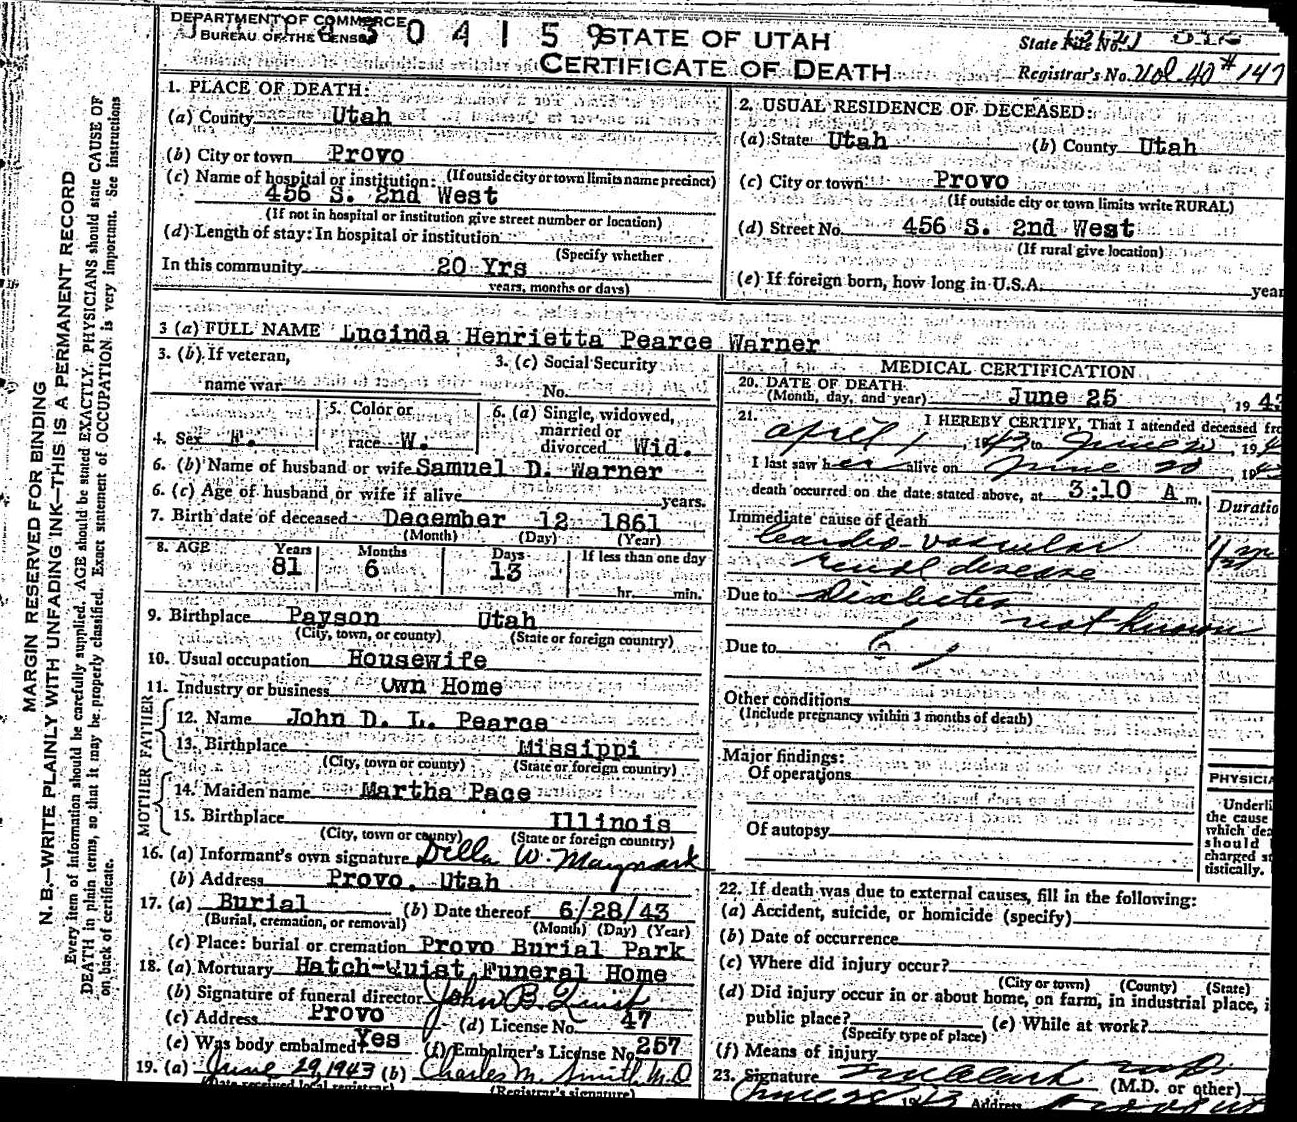 DEPARTMENT OF COMMERCE
BUREAU OF THE CENSUS
430 4159
STATE OF UTAH
CERTIFICATE OF DEATH
State File No.
Registrar's No. Vol-40 #147
1. PLACE OF DEATH:
(a) County Utah
(b) City or town Provo
(If outside city or town limits name precinct)
(c) Name of hospital or institution:
456 S. 2nd West
(If not in hospital or institution give street number or location)
(d) Length of stay: In hospital or institution
(Specify whether
In this community 20 Yrs
years, months or days)
2. USUAL RESIDENCE OF DECEASED:
(a) State Utah (b) County Utah
(c) City or town Provo
(If outside city or town limits write RURAL)
(d) Street No. 456 S. 2nd West
(If rural give location)
(e) If foreign born, how long in U.S.A. year
3 (a) FULL NAME Lucinda Henrietta Pearce Warner
3. (b) If veteran,
name war
3. (c) Social Security
No.
4. Sex F.
5. Color or
race W.
6. (a) Single, widowed,
married or
divorced Wid.
6. (b) Name of husband or wife Samuel D. Warner
6. (c) Age of husband or wife if alive years.
7. Birth date of deceased December 12 1861
(Month) (Day) (Year)
8. AGE Years Months Days If less than one day
81 6 13
hr. min.
9. Birthplace Payson Utah
(City, town, or county) (State or foreign country)
10. Usual occupation Housewife
11. Industry or business Own Home
FATHER
12. Name John D. L. Pearce
13. Birthplace Missippi
(City, town, or county) (State or foreign country)
MOTHER
14. Maiden name Martha Pace
15. Birthplace Illinois
(City, town or county) (State or foreign country)
16. (a) Informant's own signature Della W. Maynard
(b) Address Provo, Utah
17. (a) Burial (b) Date thereof 6/28/43
(Burial, cremation, or removal) (Month) (Day) (Year)
(c) Place: burial or cremation Provo Burial Park
18. (a) Mortuary Hatch-Quist Funeral Home
(b) Signature of funeral director John B. Quist
(c) Address Provo (d) License No. 47
(e) Was body embalmed Yes (f) Embalmer's License No 257
19. (a) June 29, 1943 (b) Charles M. Smith, M.D
(Date received local registrar) (Registrar's signature)
MEDICAL CERTIFICATION
20. DATE OF DEATH
(Month, day, and year) June 25, 1943
21. I HEREBY CERTIFY, That I attended deceased fro
april 1, 1943 to June 20, 194
I last saw her alive on June 20 194
death occurred on the date stated above, at 3:10 A m.
Duratio
Immediate cause of death
Cardio-vascular
renal disease
Due to Diabetes
not known
Due to
Other conditions
(Include pregnancy within 3 months of death)
Major findings:
Of operations
Of autopsy
PHYSICIA
Underli
the cause
which dea
should
charged st
tistically.
22. If death was due to external causes, fill in the following:
(a) Accident, suicide, or homicide (specify)
(b) Date of occurrence
(c) Where did injury occur?
(City or town) (County) (State)
(d) Did injury occur in or about home, on farm, in industrial place, i
public place? (e) While at work?
(Specify type of place)
(f) Means of injury
23. Signature Clark M.D. (M.D. or other)
1943 Address
MARGIN RESERVED FOR BINDING
N. B.—WRITE PLAINLY WITH UNFADING INK—THIS IS A PERMANENT RECORD
Every item of information should be carefully supplied. AGE should be stated EXACTLY. PHYSICIANS should state CAUSE OF
DEATH in plain terms, so that it may be properly classified. Exact statement of OCCUPATION is very important. See instructions
on back of certificate.